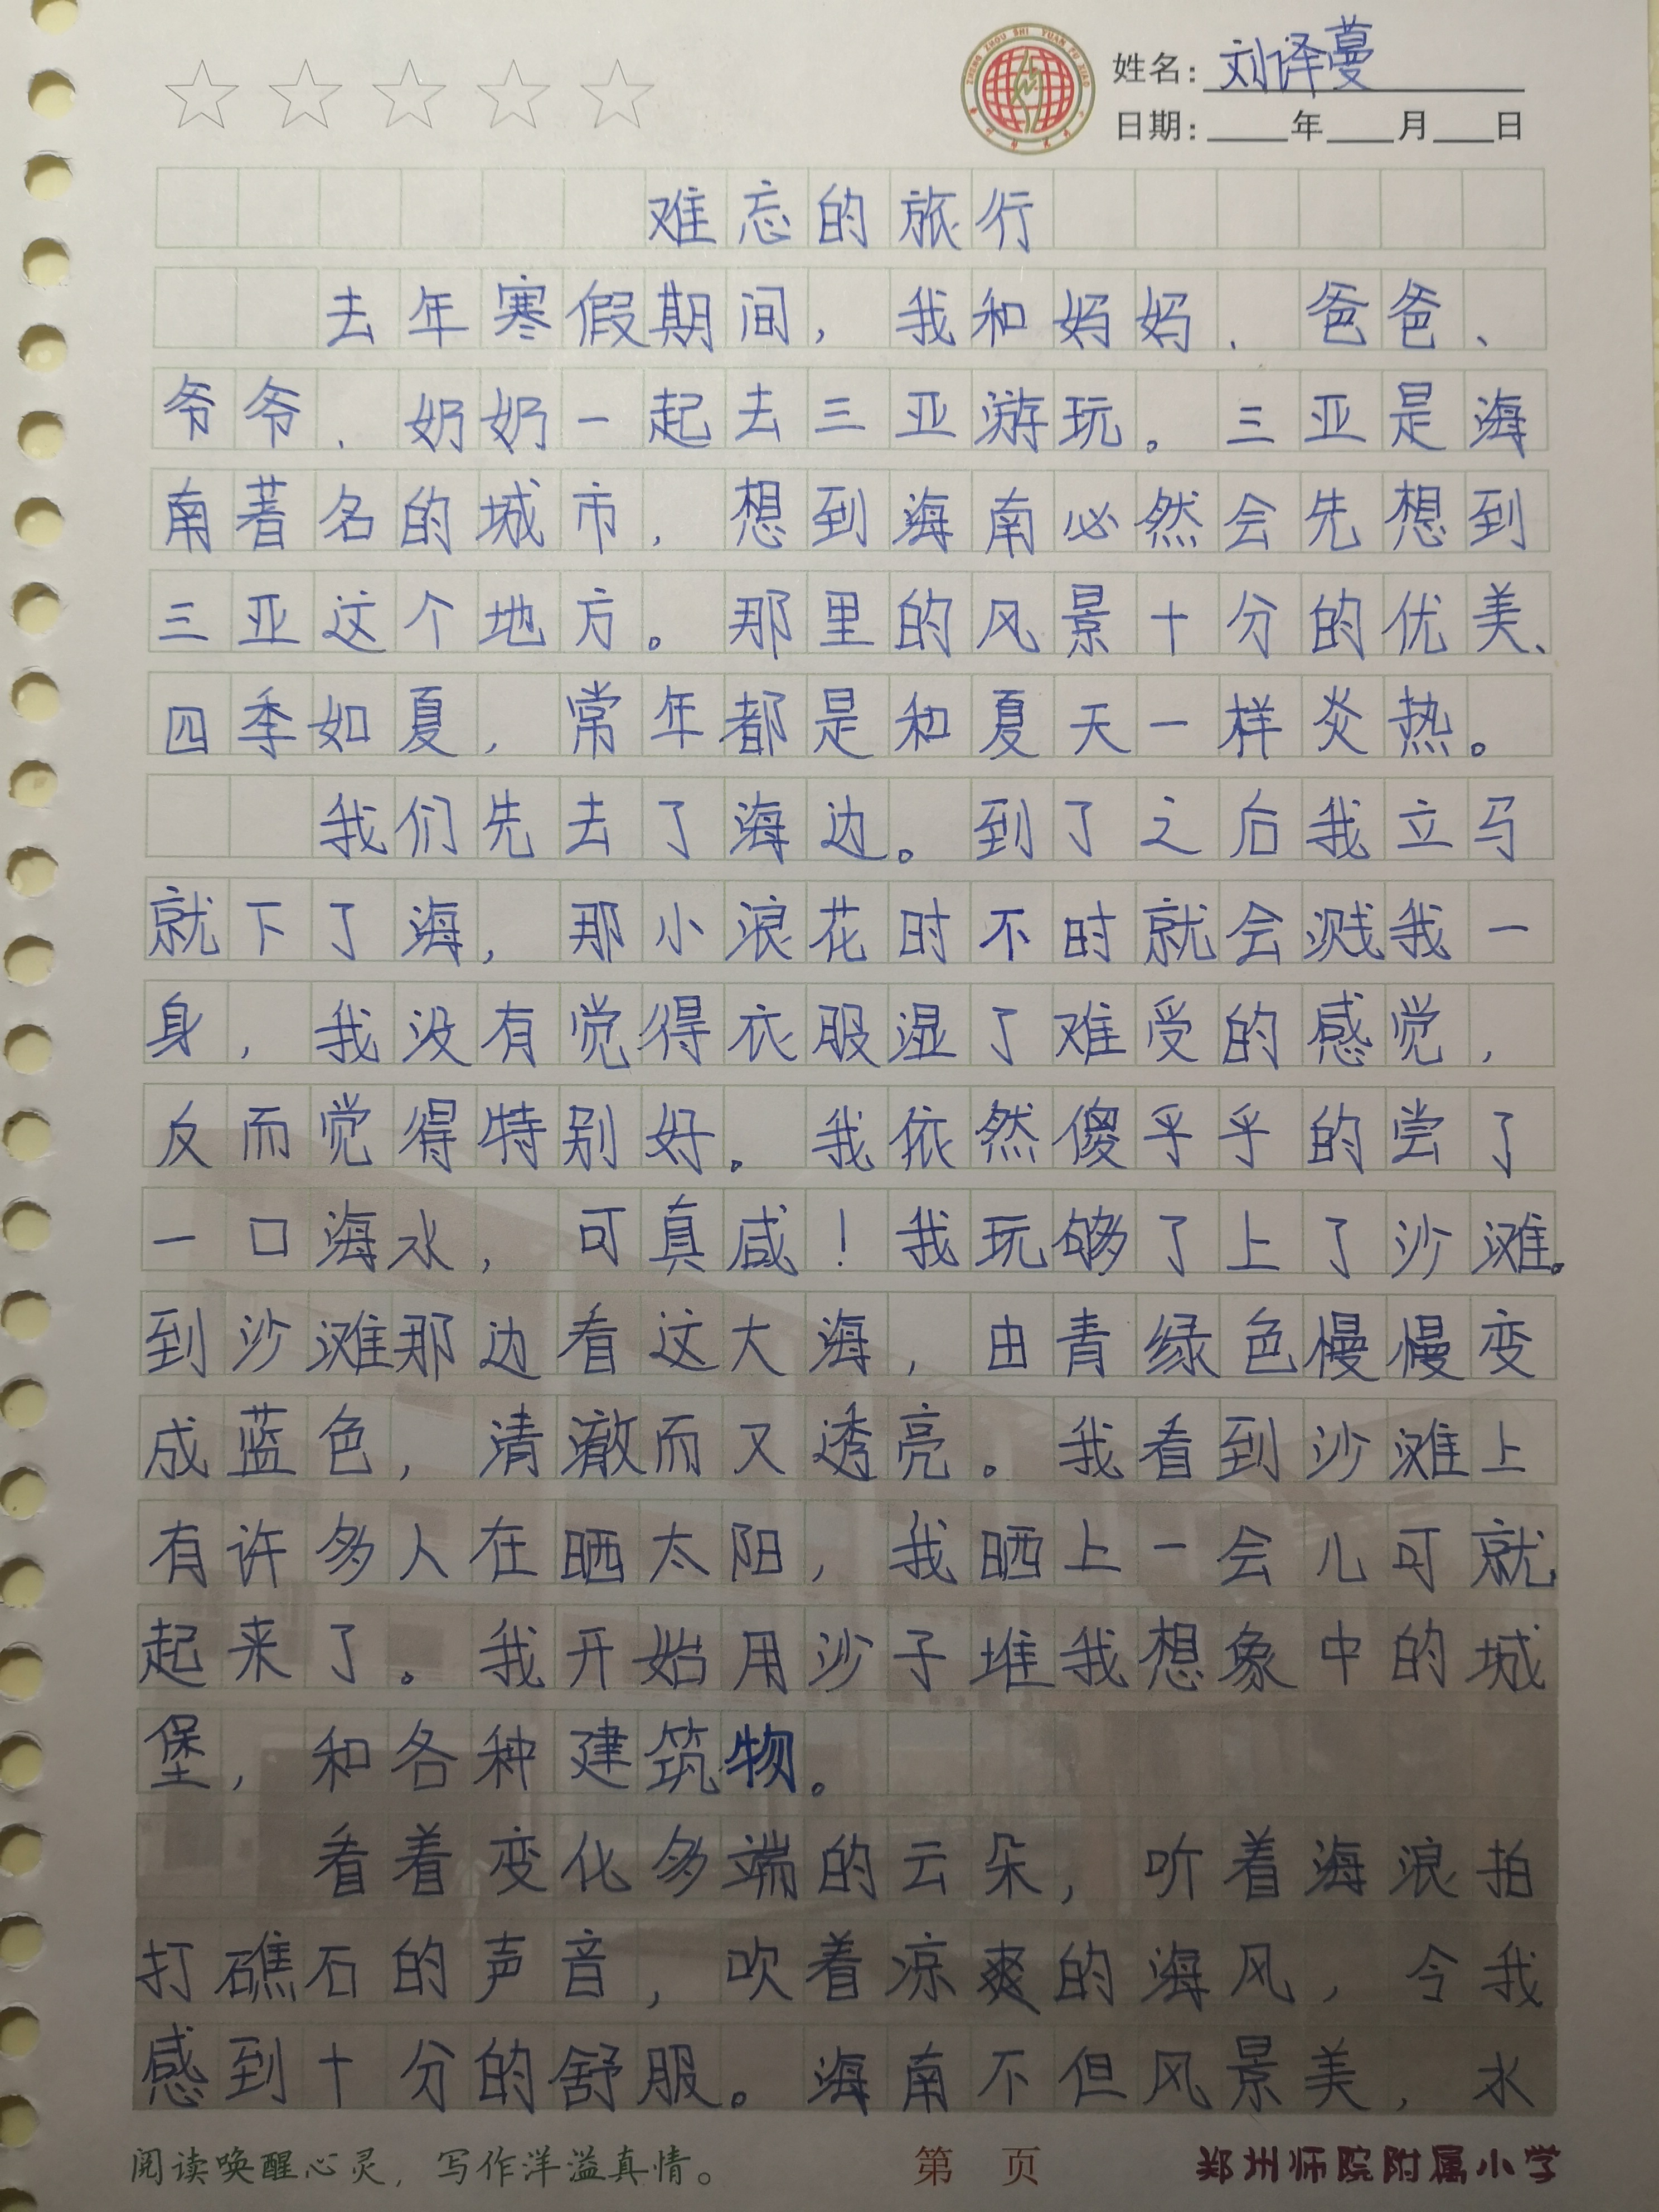 姓名：刘译蔓
日期：____年____月____日
难忘的旅行
去年寒假期间，我和妈妈、爸爸、
爷爷、奶奶一起去三亚游玩。三亚是海
南著名的城市，想到海南必然会先想到
三亚这个地方。那里的风景十分的优美、
四季如夏，常年都是和夏天一样炎热。
我们先去了海边。到了之后我立马
就下了海，那小浪花时不时就会溅我一
身，我没有觉得衣服湿了难受的感觉，
反而觉得特别好。我依然傻乎乎的尝了
一口海水，可真咸！我玩够了上了沙滩。
到沙滩那边看这大海，由青绿色慢慢变
成蓝色，清澈而又透亮。我看到沙滩上
有许多人在晒太阳，我晒上一会儿可就
起来了。我开始用沙子堆我想象中的城
堡，和各种建筑物。
看着变化多端的云朵，听着海浪拍
打礁石的声音，吹着凉爽的海风，令我
感到十分的舒服。海南不但风景美，水
阅读唤醒心灵，写作洋溢真情。 第 页 郑州师院附属小学